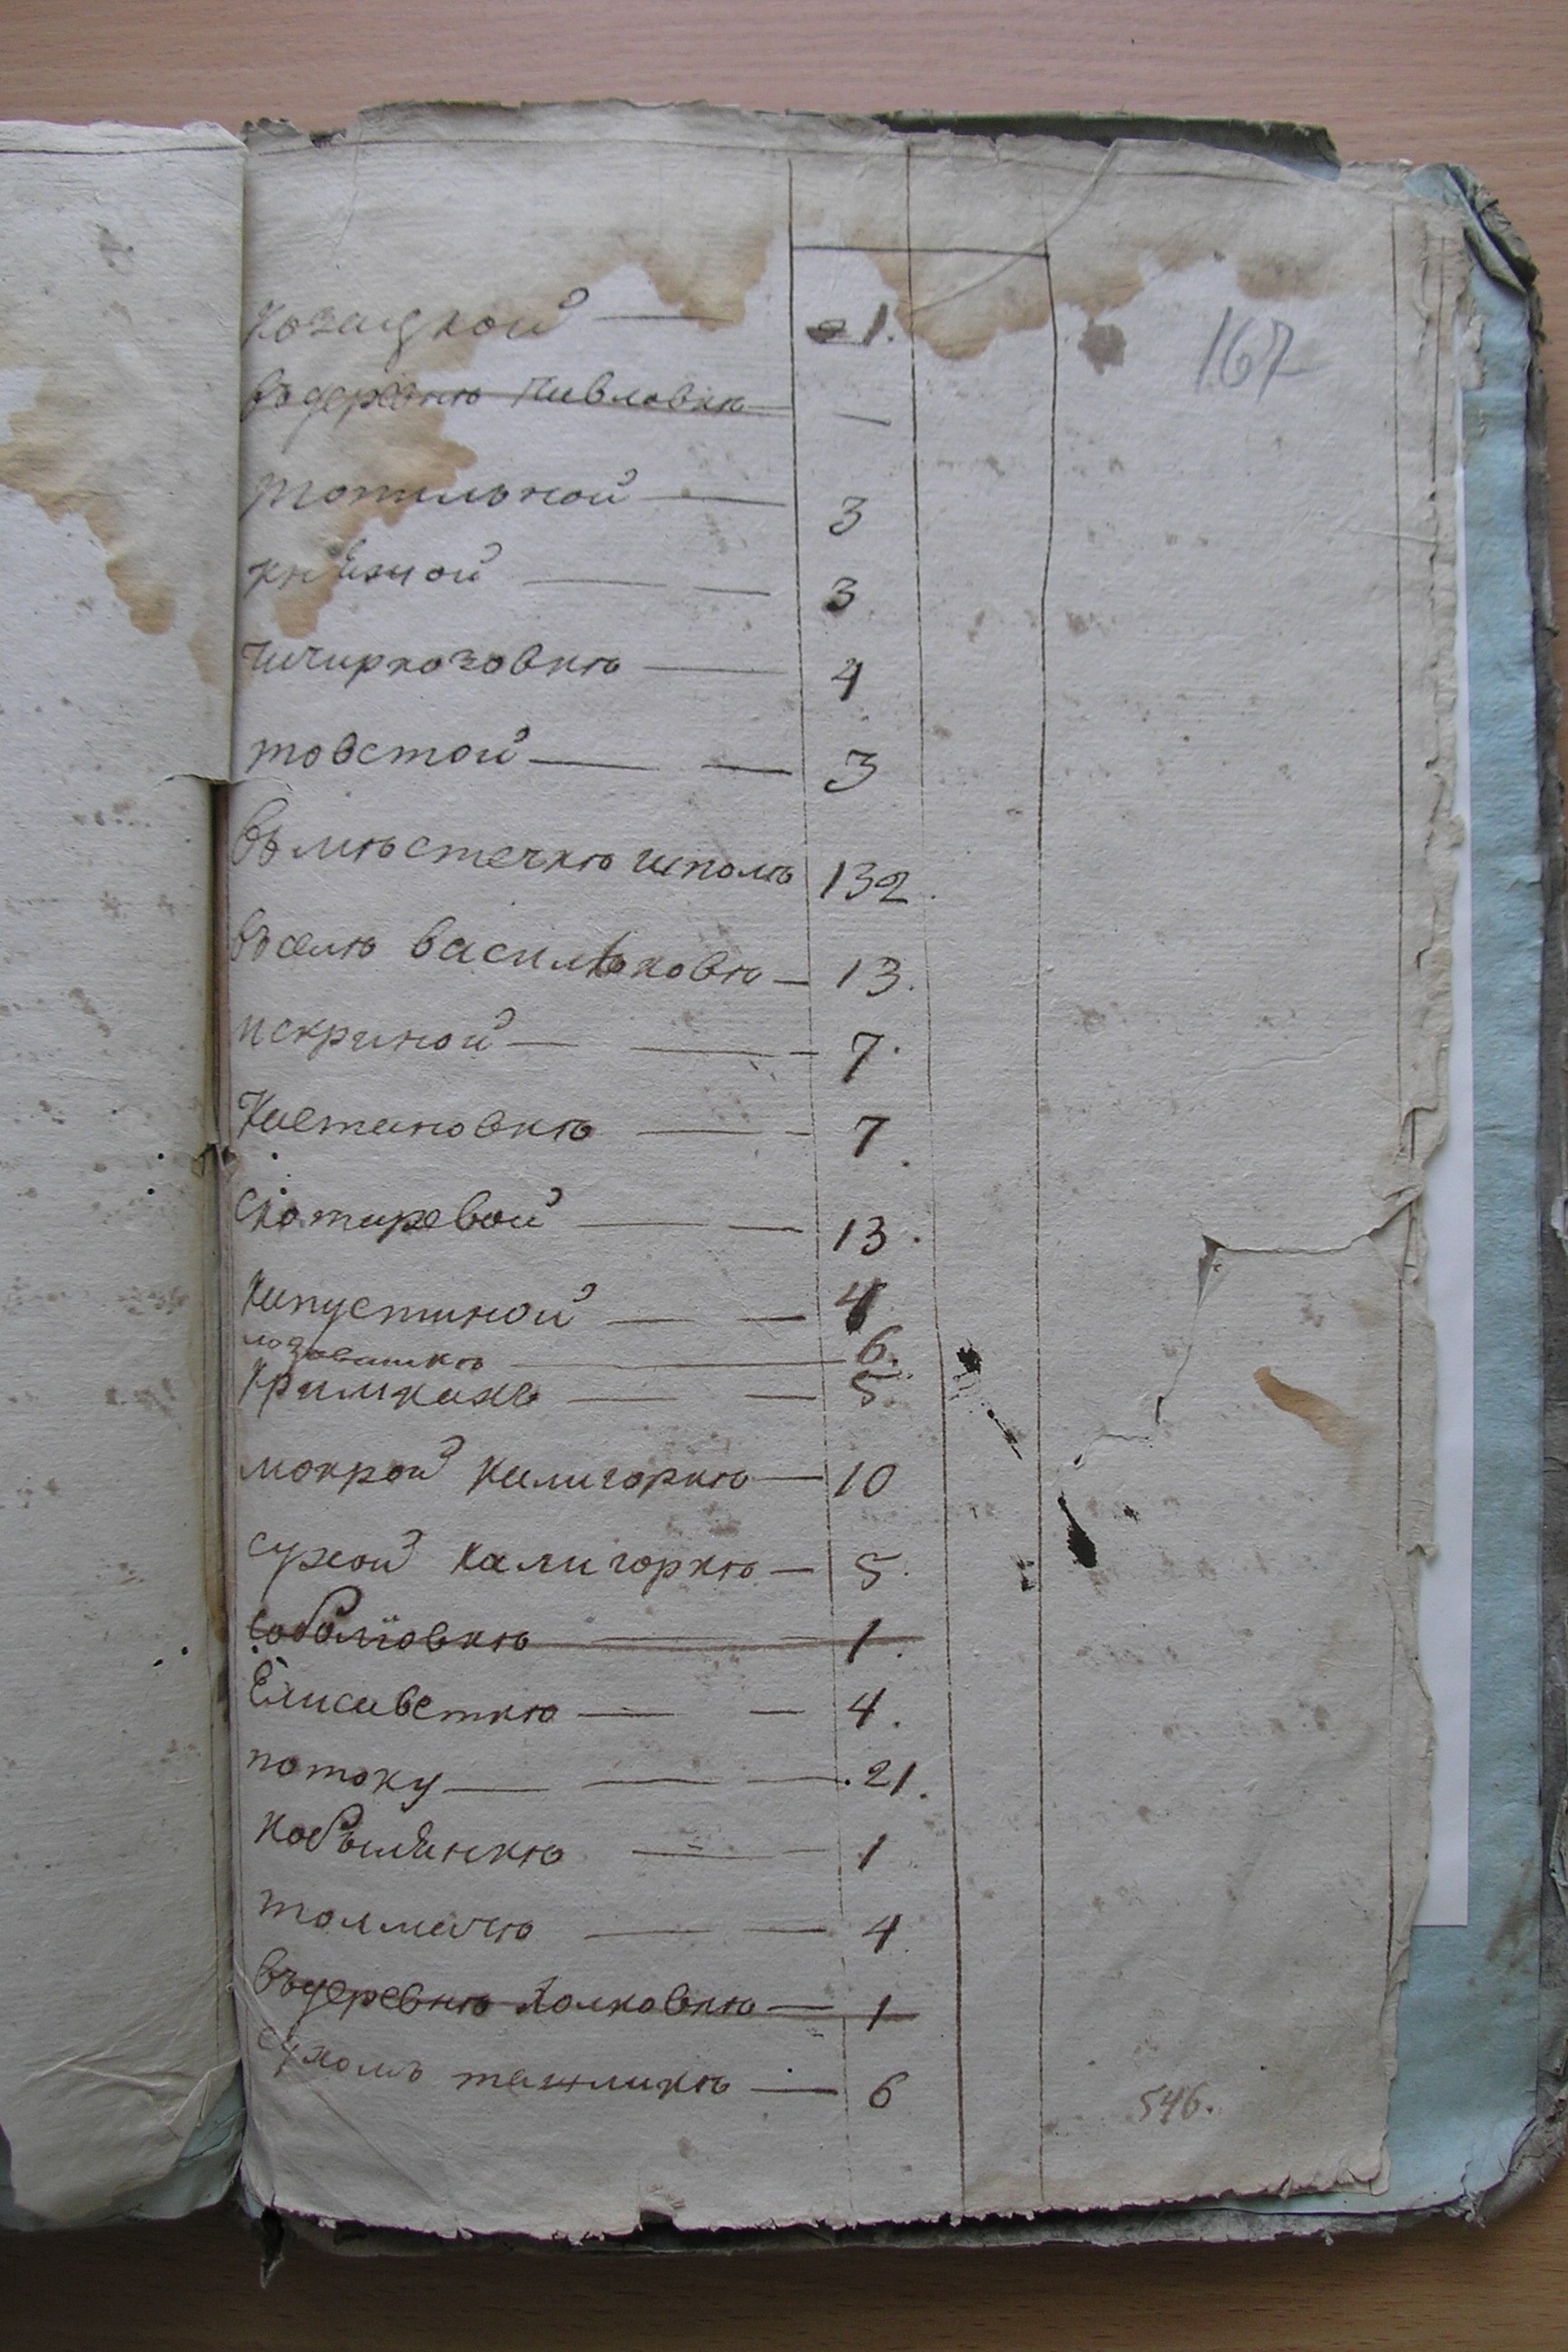 Козацкой — 21.
167
въ деревнѣ Павловки —
Топильной — 3
княжой — — 3
Чичиркозовкѣ — 4
товстой — — 3
въ мѣстечкѣ шполѣ 132.
въ селѣ васильковѣ — 13.
искриной — — 7.
Каетановкѣ — 7.
Скотаревой — — 13.
Капустиной — — 4
лозоваткѣ — 6.
Кримкахъ — — 5.
мокрой Калигоркѣ — 10
сухой калигоркѣ — 5.
соболïовкѣ — 1.
Елисаветкѣ — — 4.
потоку — — — .21.
кобылянкѣ — — 1
толмачѣ — — 4
въ деревнѣ Колковкѣ — 1
Сухомъ ташликѣ — 6
546.